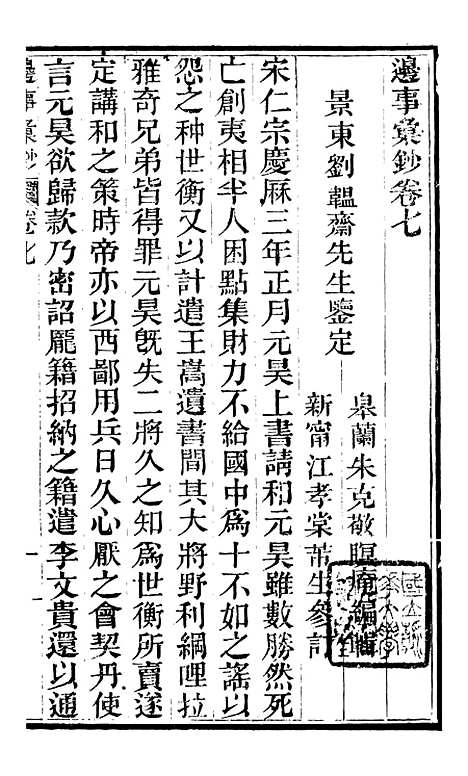 邊事彙鈔卷七
景東劉韞齋先生鑒定
皋蘭朱克敬瞑庵編輯
新甯江孝棠芾生參訂
宋仁宗慶厤三年正月元昊上書請和元昊雖數勝然死
亡創夷相半人困點集財力不給國中爲十不如之謠以
怨之种世衡又以計遣王嵩遺書間其大將野利綱哩拉
雅奇兄弟皆得罪元昊旣失二將久之知爲世衡所賣遂
定講和之策時帝亦以西鄙用兵日久心厭之會契丹使
言元昊欲歸款乃密詔龐籍招納之籍遣李文貴還以通
邊事彙鈔 卷七 一